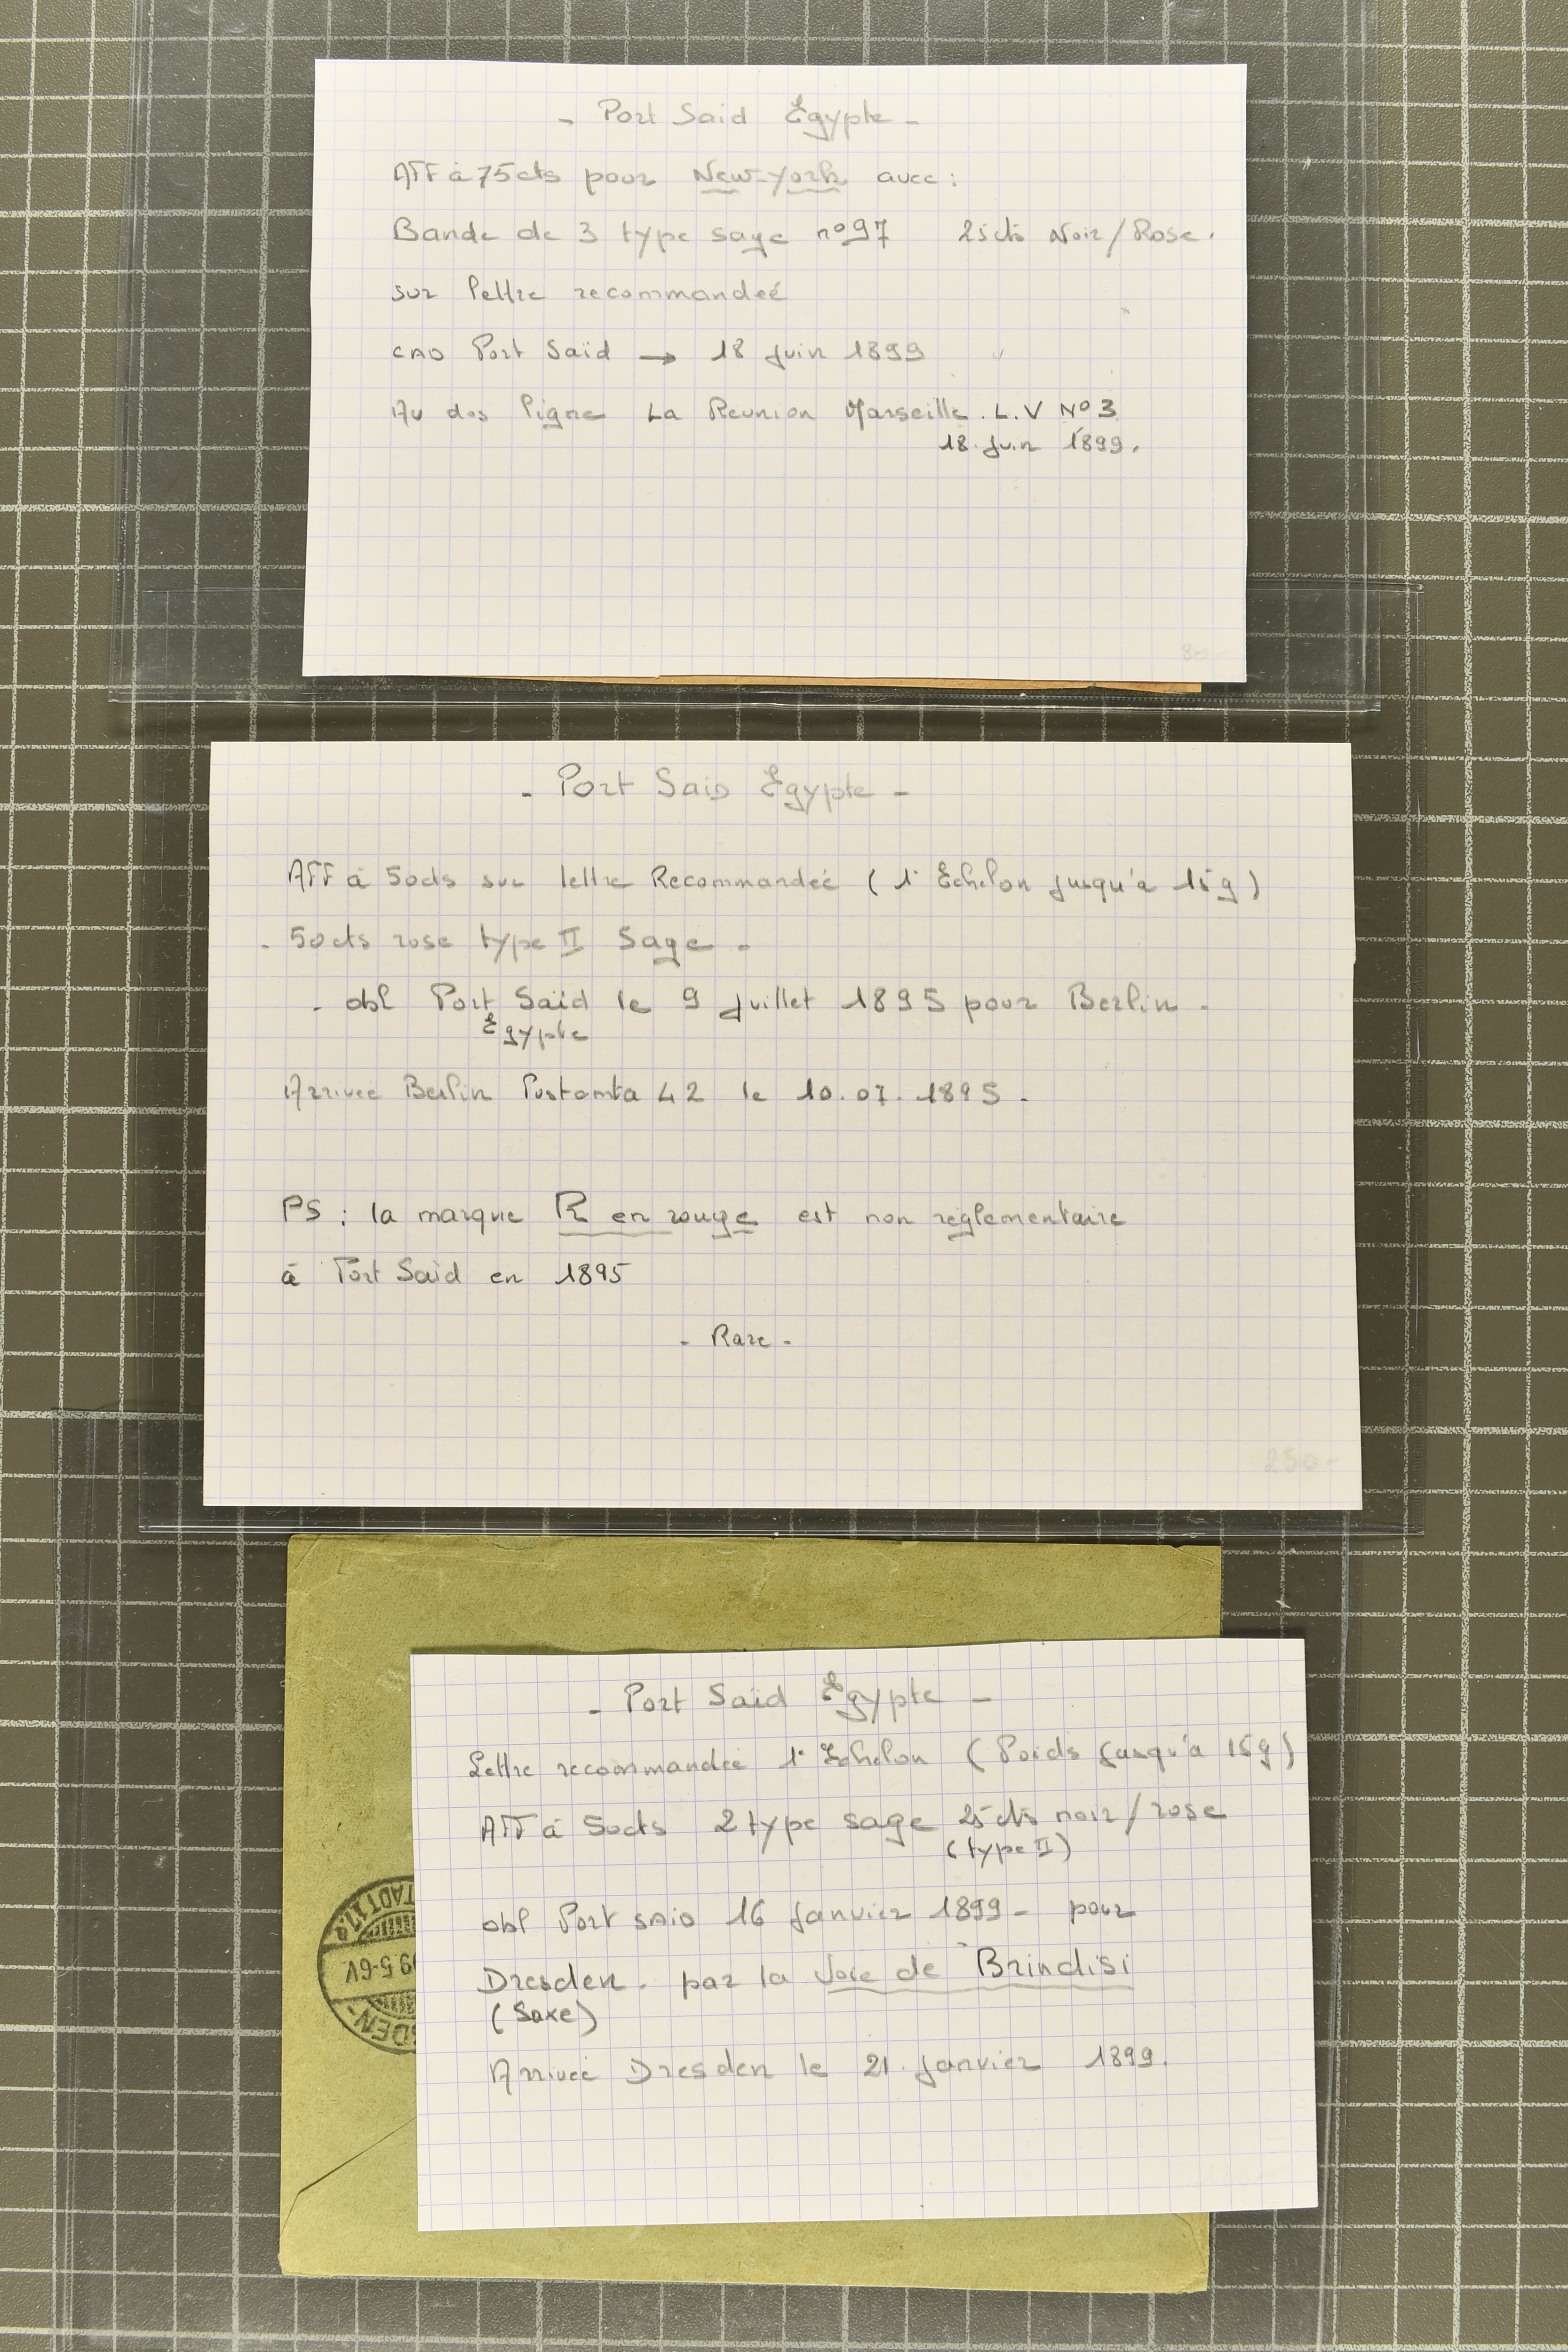 - Port Said Égypte -
Aff à 75cts pour New-york avec :
Bande de 3 type sage n°97 25cts Noir/Rose.
sur lettre recommandeé
CAD Port Saïd → 18 Juin 1899
Au dos ligne La Reunion Marseille. L.V N° 3
18. Juin 1899.
80-
- Port Said Égypte -
Aff à 50cts sur lettre Recommandeé ( 1° Echelon Jusqu'à 15g )
- 50cts rose type II Sage -
- obl Port Saïd le 9 Juillet 1895 pour Berlin -
Egypte
Arrivée Berlin 42 le 10.07.1895 -
PS : la marque R en rouge est non réglementaire
à Port Saïd en 1895
- Rare -
250-
- Port Saïd Égypte -
Lettre recommandée 1° Echelon ( Poids Jusqu'à 15g )
Aff à 50cts 2 type sage 25cts noir/rose
(type II)
obl Port Said 16 Janvier 1899 - pour
Dresden. par la Voie de Brindisi
(Saxe)
Arrivée Dresden le 21 Janvier 1899.